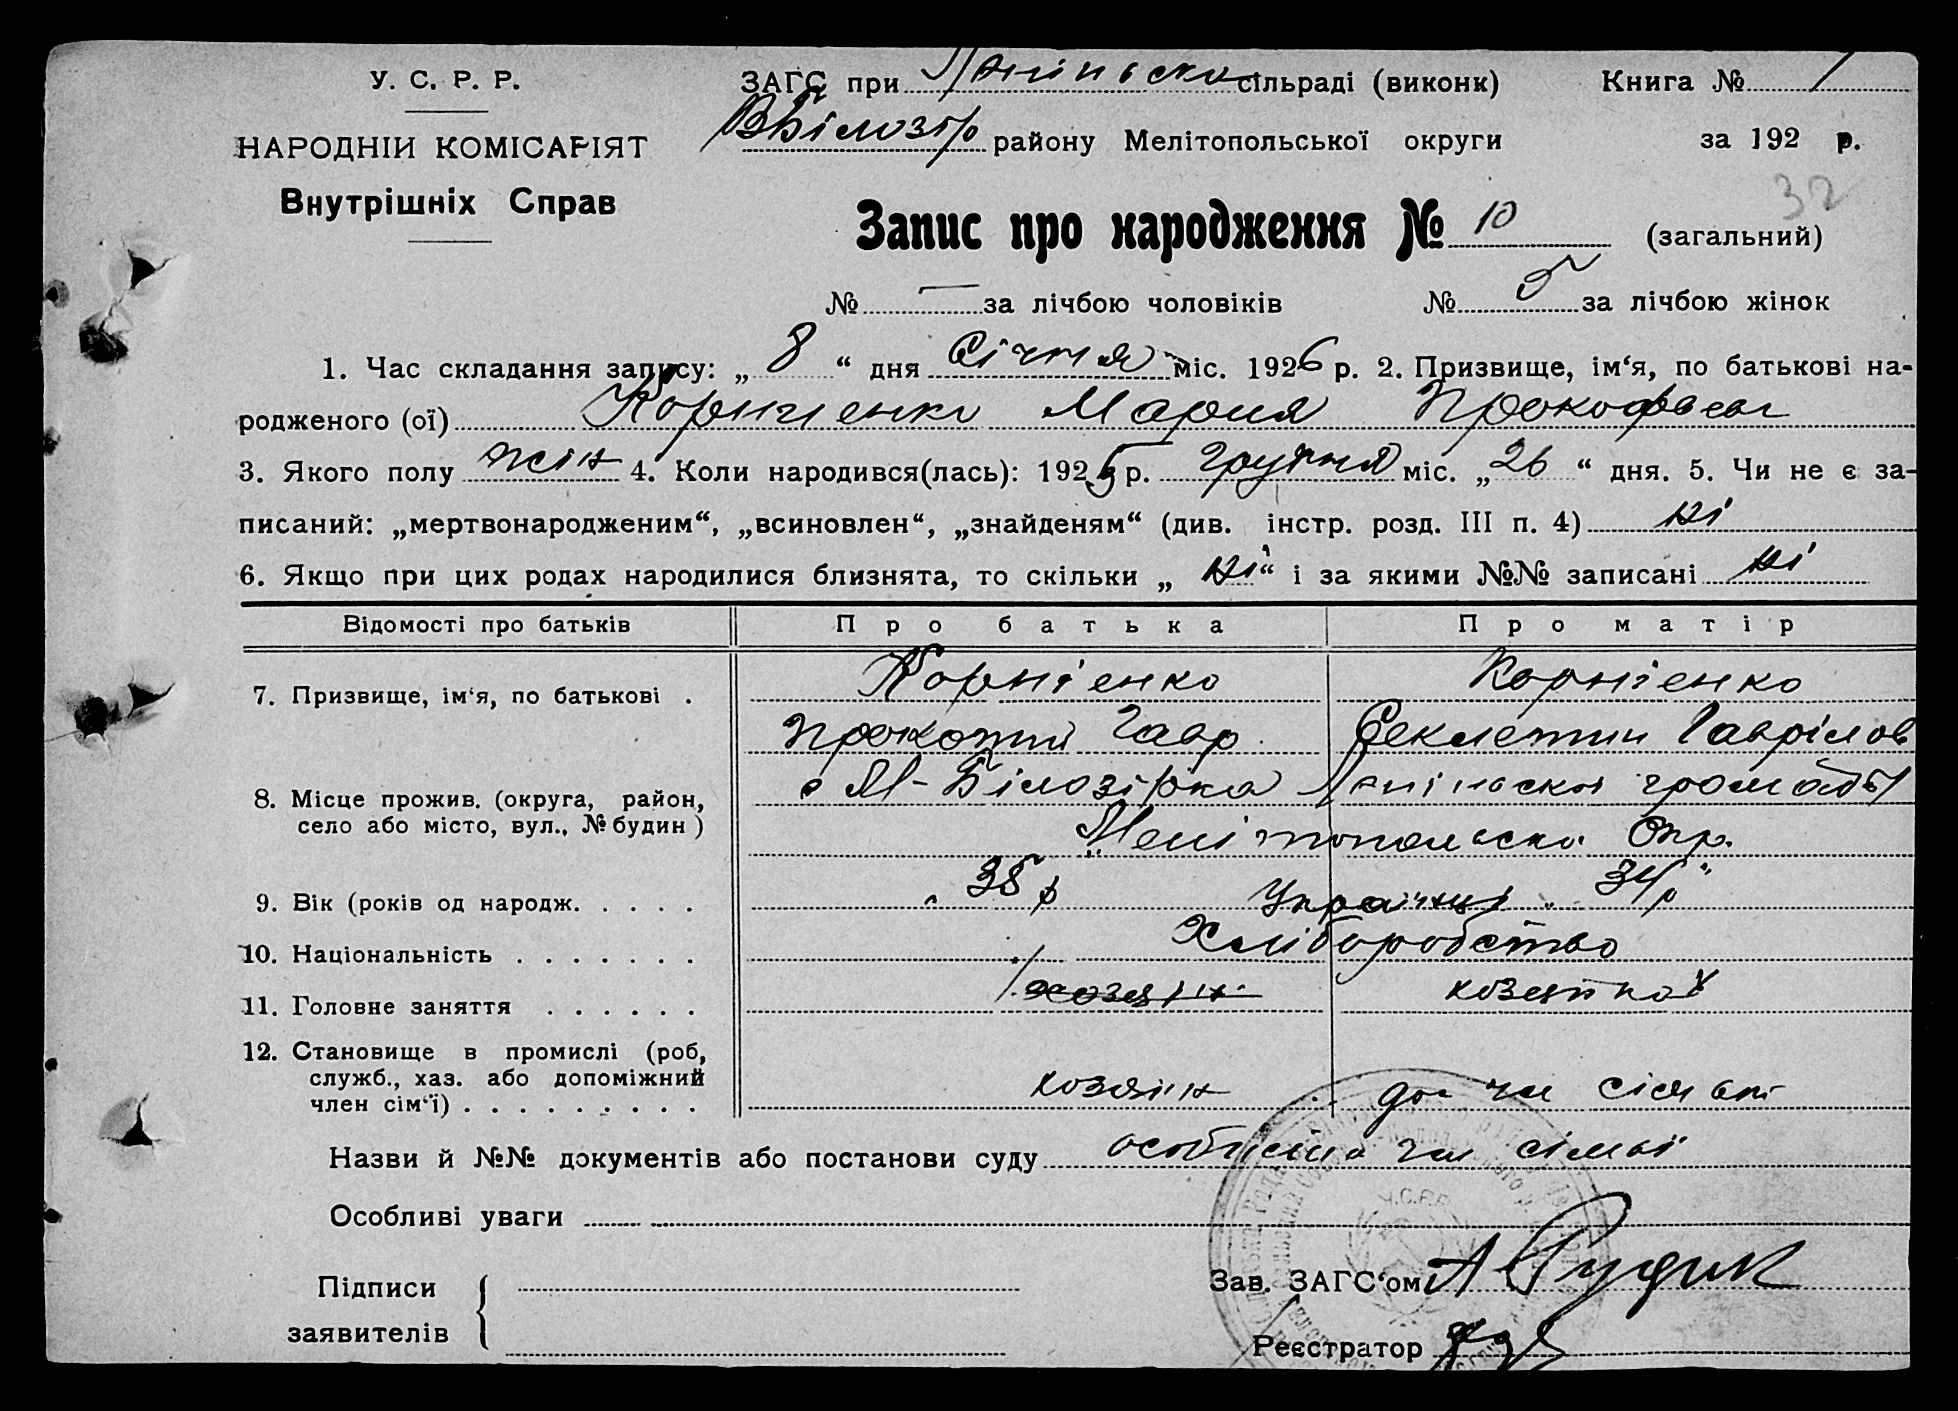 У. С. Р. Р.
НАРОДНІЙ КОМІСАРІЯТ
Внутрішніх Справ
ЗАГС при сільраді (виконк)
ВБілозір району Мелітопольської округи
Книга № 1
за 192 р.
32
Запис про народження № 10 (загальний)
№ — за лічбою чоловіків № 5 за лічбою жінок
1. Час складання запису: „ 8 “ дня Січня міс. 1926 р. 2. Призвище, ім‘я, по батькові на-
родженого (ої) Корниенко Мария Прокофьев
3. Якого полу жін 4. Коли народився(лась): 1925 р. Грудня міс. „ 26 “ дня. 5. Чи не є за-
писаний: „мертвонародженим“, „всиновлен“, „знайденям“ (див. інстр. розд. III п. 4) ні
6. Якщо при цих родах народилися близнята, то скільки „ ні “ і за якими №№ записані ні
Відомості про батьків Про батька Про матір
7. Призвище, ім‘я, по батькові . Корнієнко Корнієнко
Гавр. Секлетии Гаврілов
8. Місце прожив. (округа, район, с М-Білозірка громади
село або місто, вул., № будин) Мелітопольска Окр.
9. Вік (років од народж. . . . . 38 р 34 р
Українці
10. Національність . . . . . . . Хліборобство
11. Головне заняття . . . . . . хозяін хозяйка
12. Становище в промислі (роб,
служб., хаз. або допоміжний
член сім‘ї) . . . . . . . . . хозяін до чл сімьі
Назви й №№ документів або постанови суду особисте чл сімьі
Особливі уваги
Підписи
заявителів
У.С.Р.Р.
Зав. ЗАГС‘ом А Рудик
Реєстратор